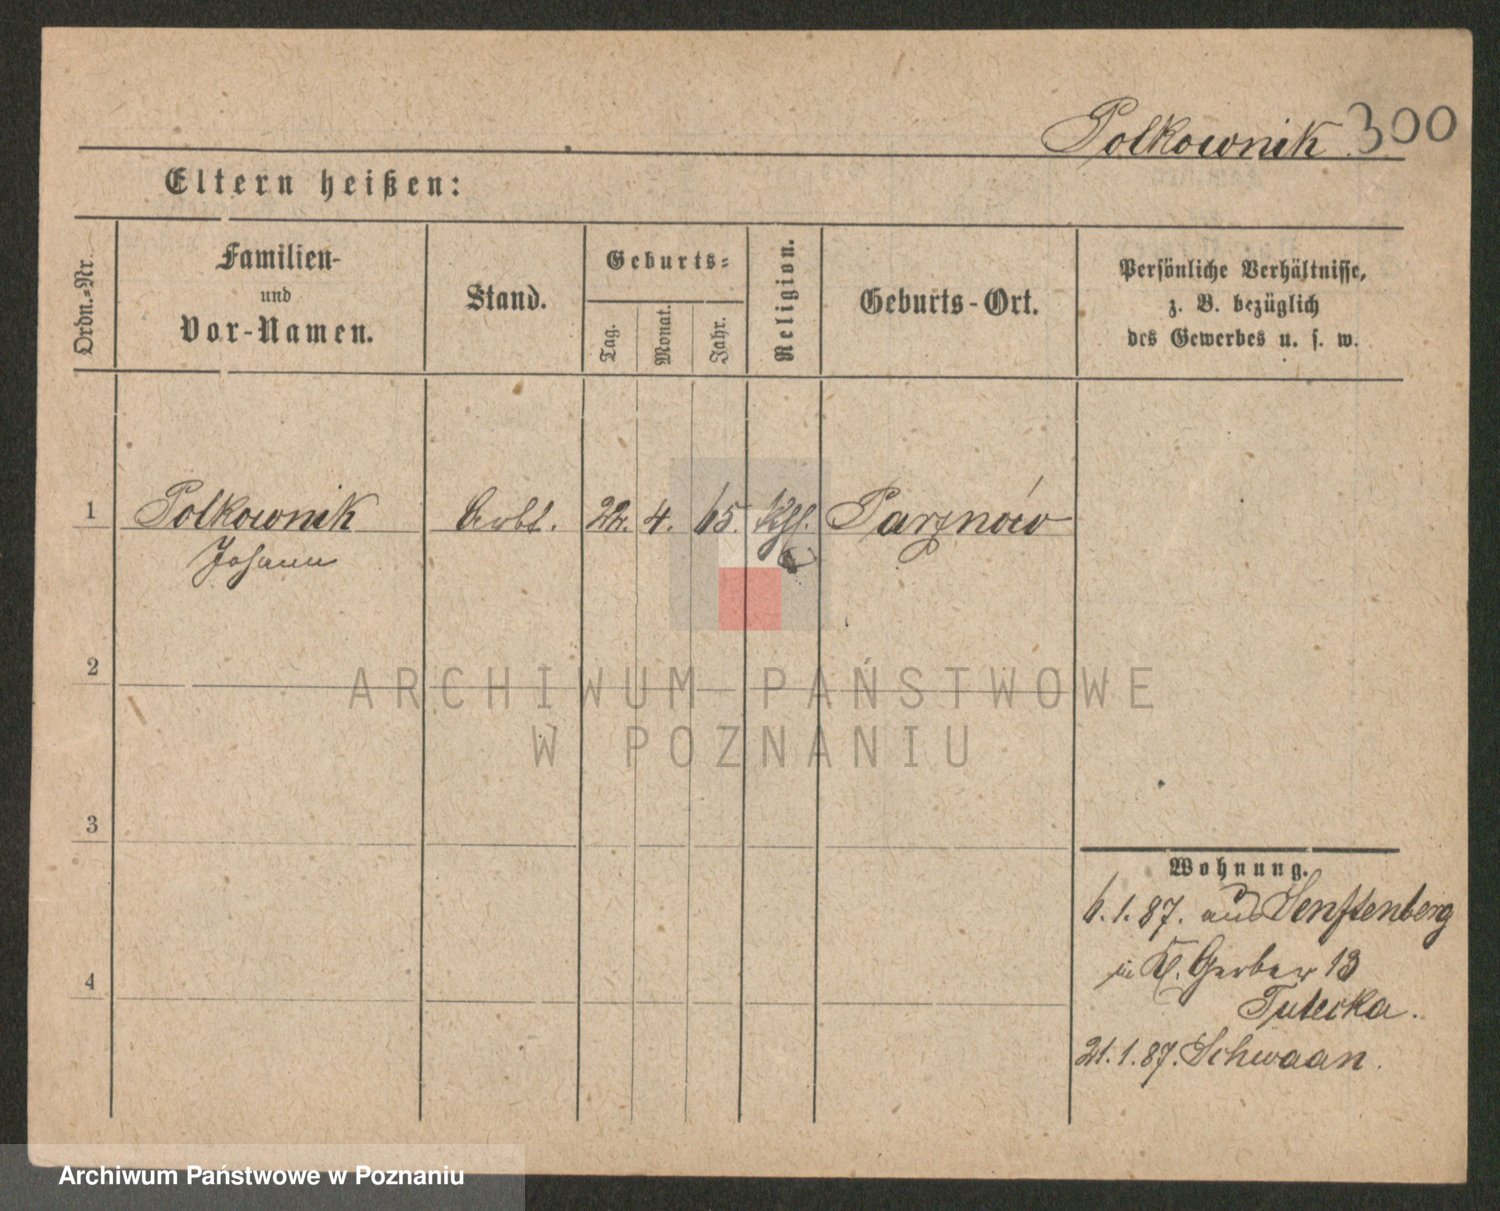 Polkownik 300
Eltern heißen:
Ordn.=Nr.
Familien-
und
Vor-Namen.
Stand.
Geburts=
Tag.
Monat.
Jahr.
Religion.
Geburts-Ort.
Persönliche Verhältnisse,
z. B. bezüglich
des Gewerbes u. s. w.
1 Polkownik Arbt. 22. 4. 65. Kth. Parznów
Johann
2
ARCHIWUM PAŃSTWOWE
W POZNANIU
3
Wohnung.
6.1.87. aus Senftenberg
4
in K. Gerber 13
21.1.87. Schwaan.
Archiwum Państwowe w Poznaniu